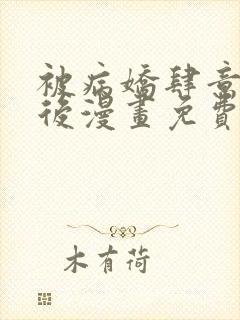 被病嬌肆意
後漫畫免費
木有荷